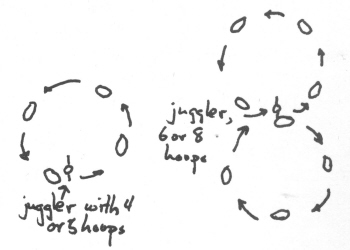 juggler with 4
or 5 hoops
juggler,
6 or 8
hoops